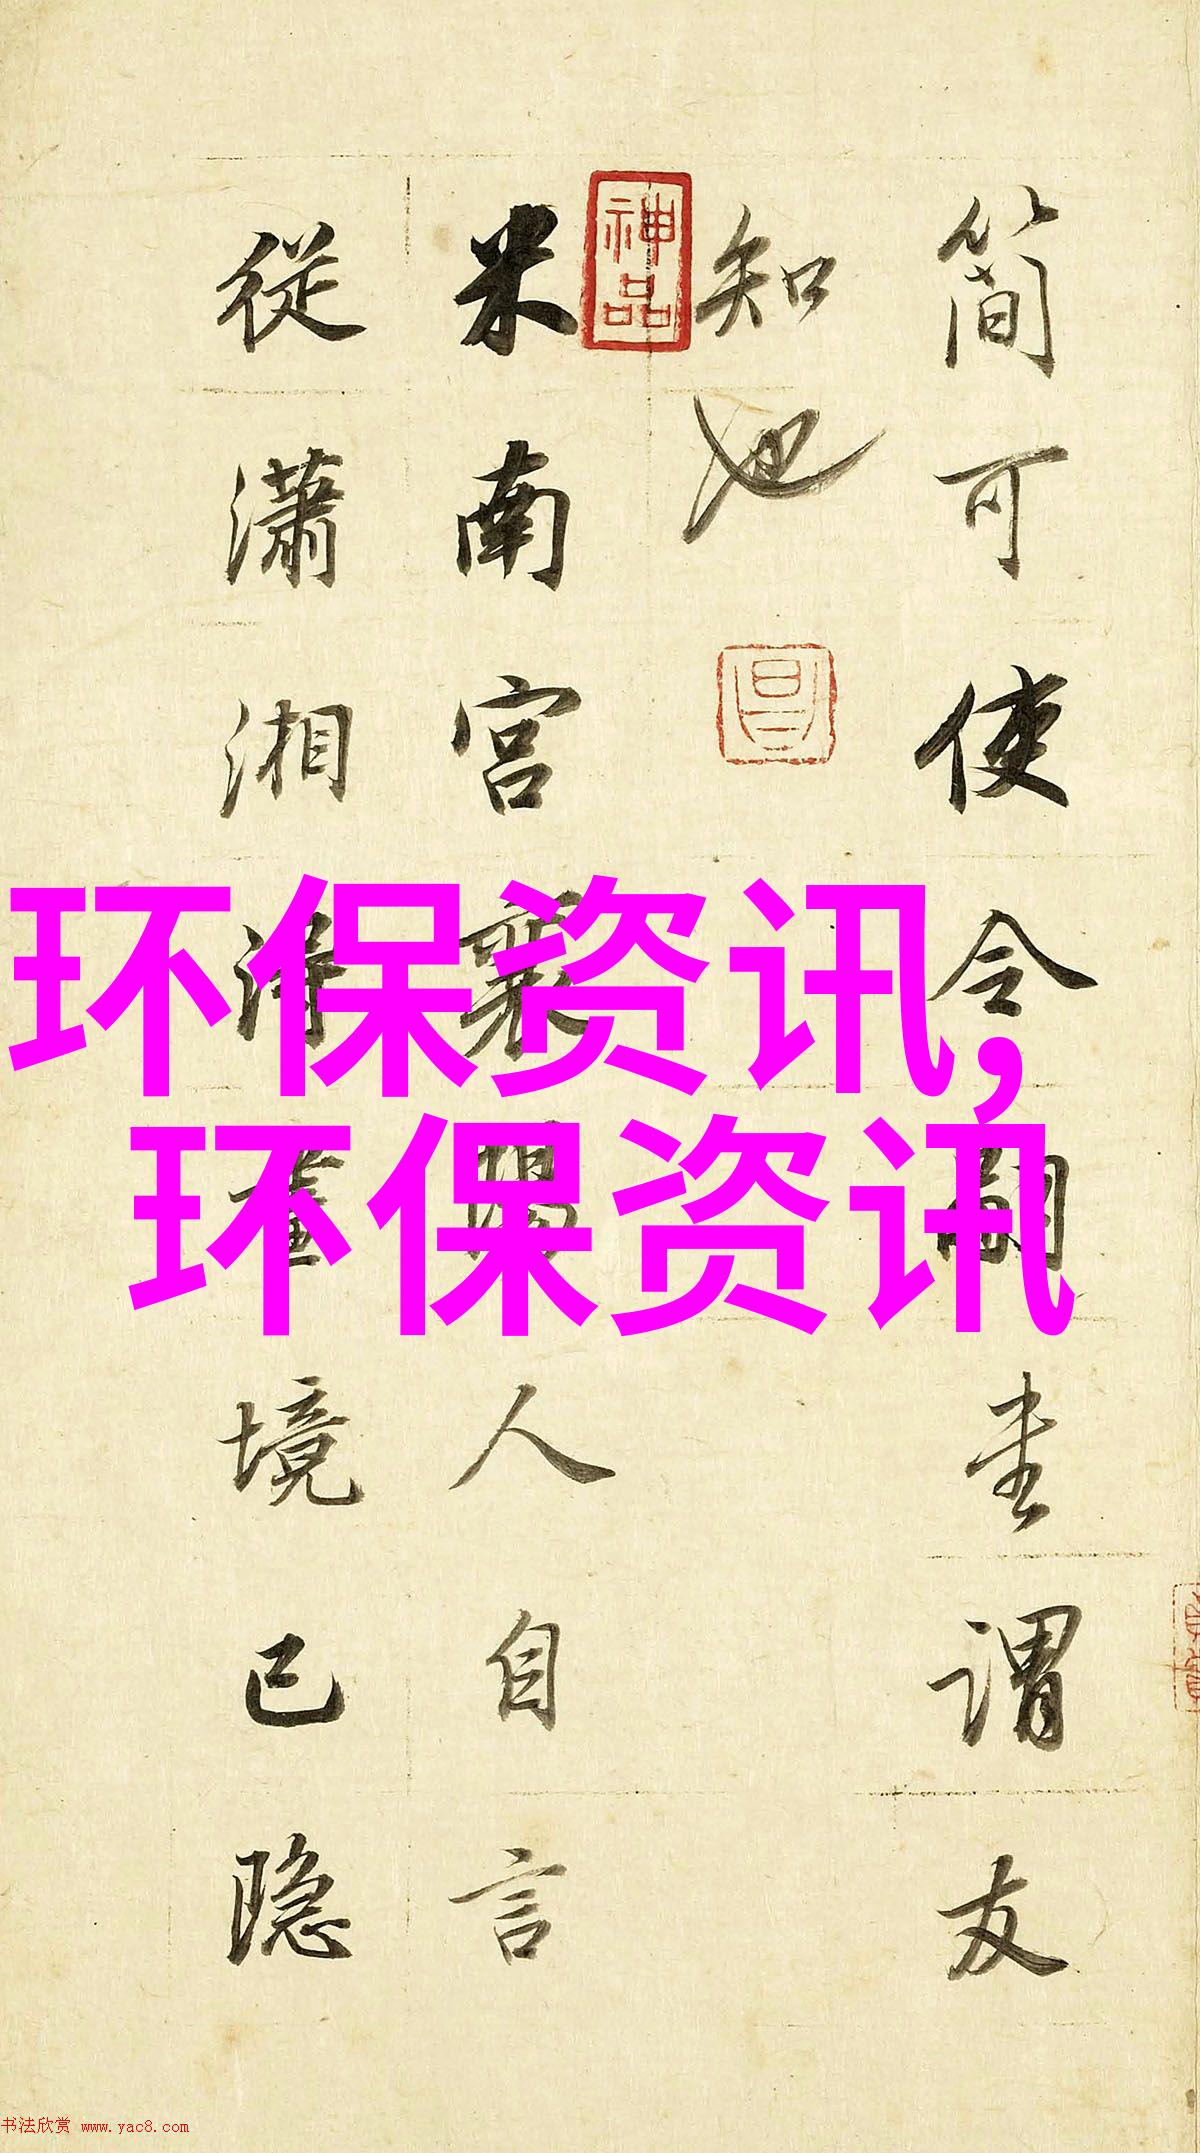 簡可使令謂友
知也
神品
昌
米南宮襄陽人自言
從瀟湘得畫境已隱
环保资讯,
环保资讯
书法欣赏 www.yac8.com